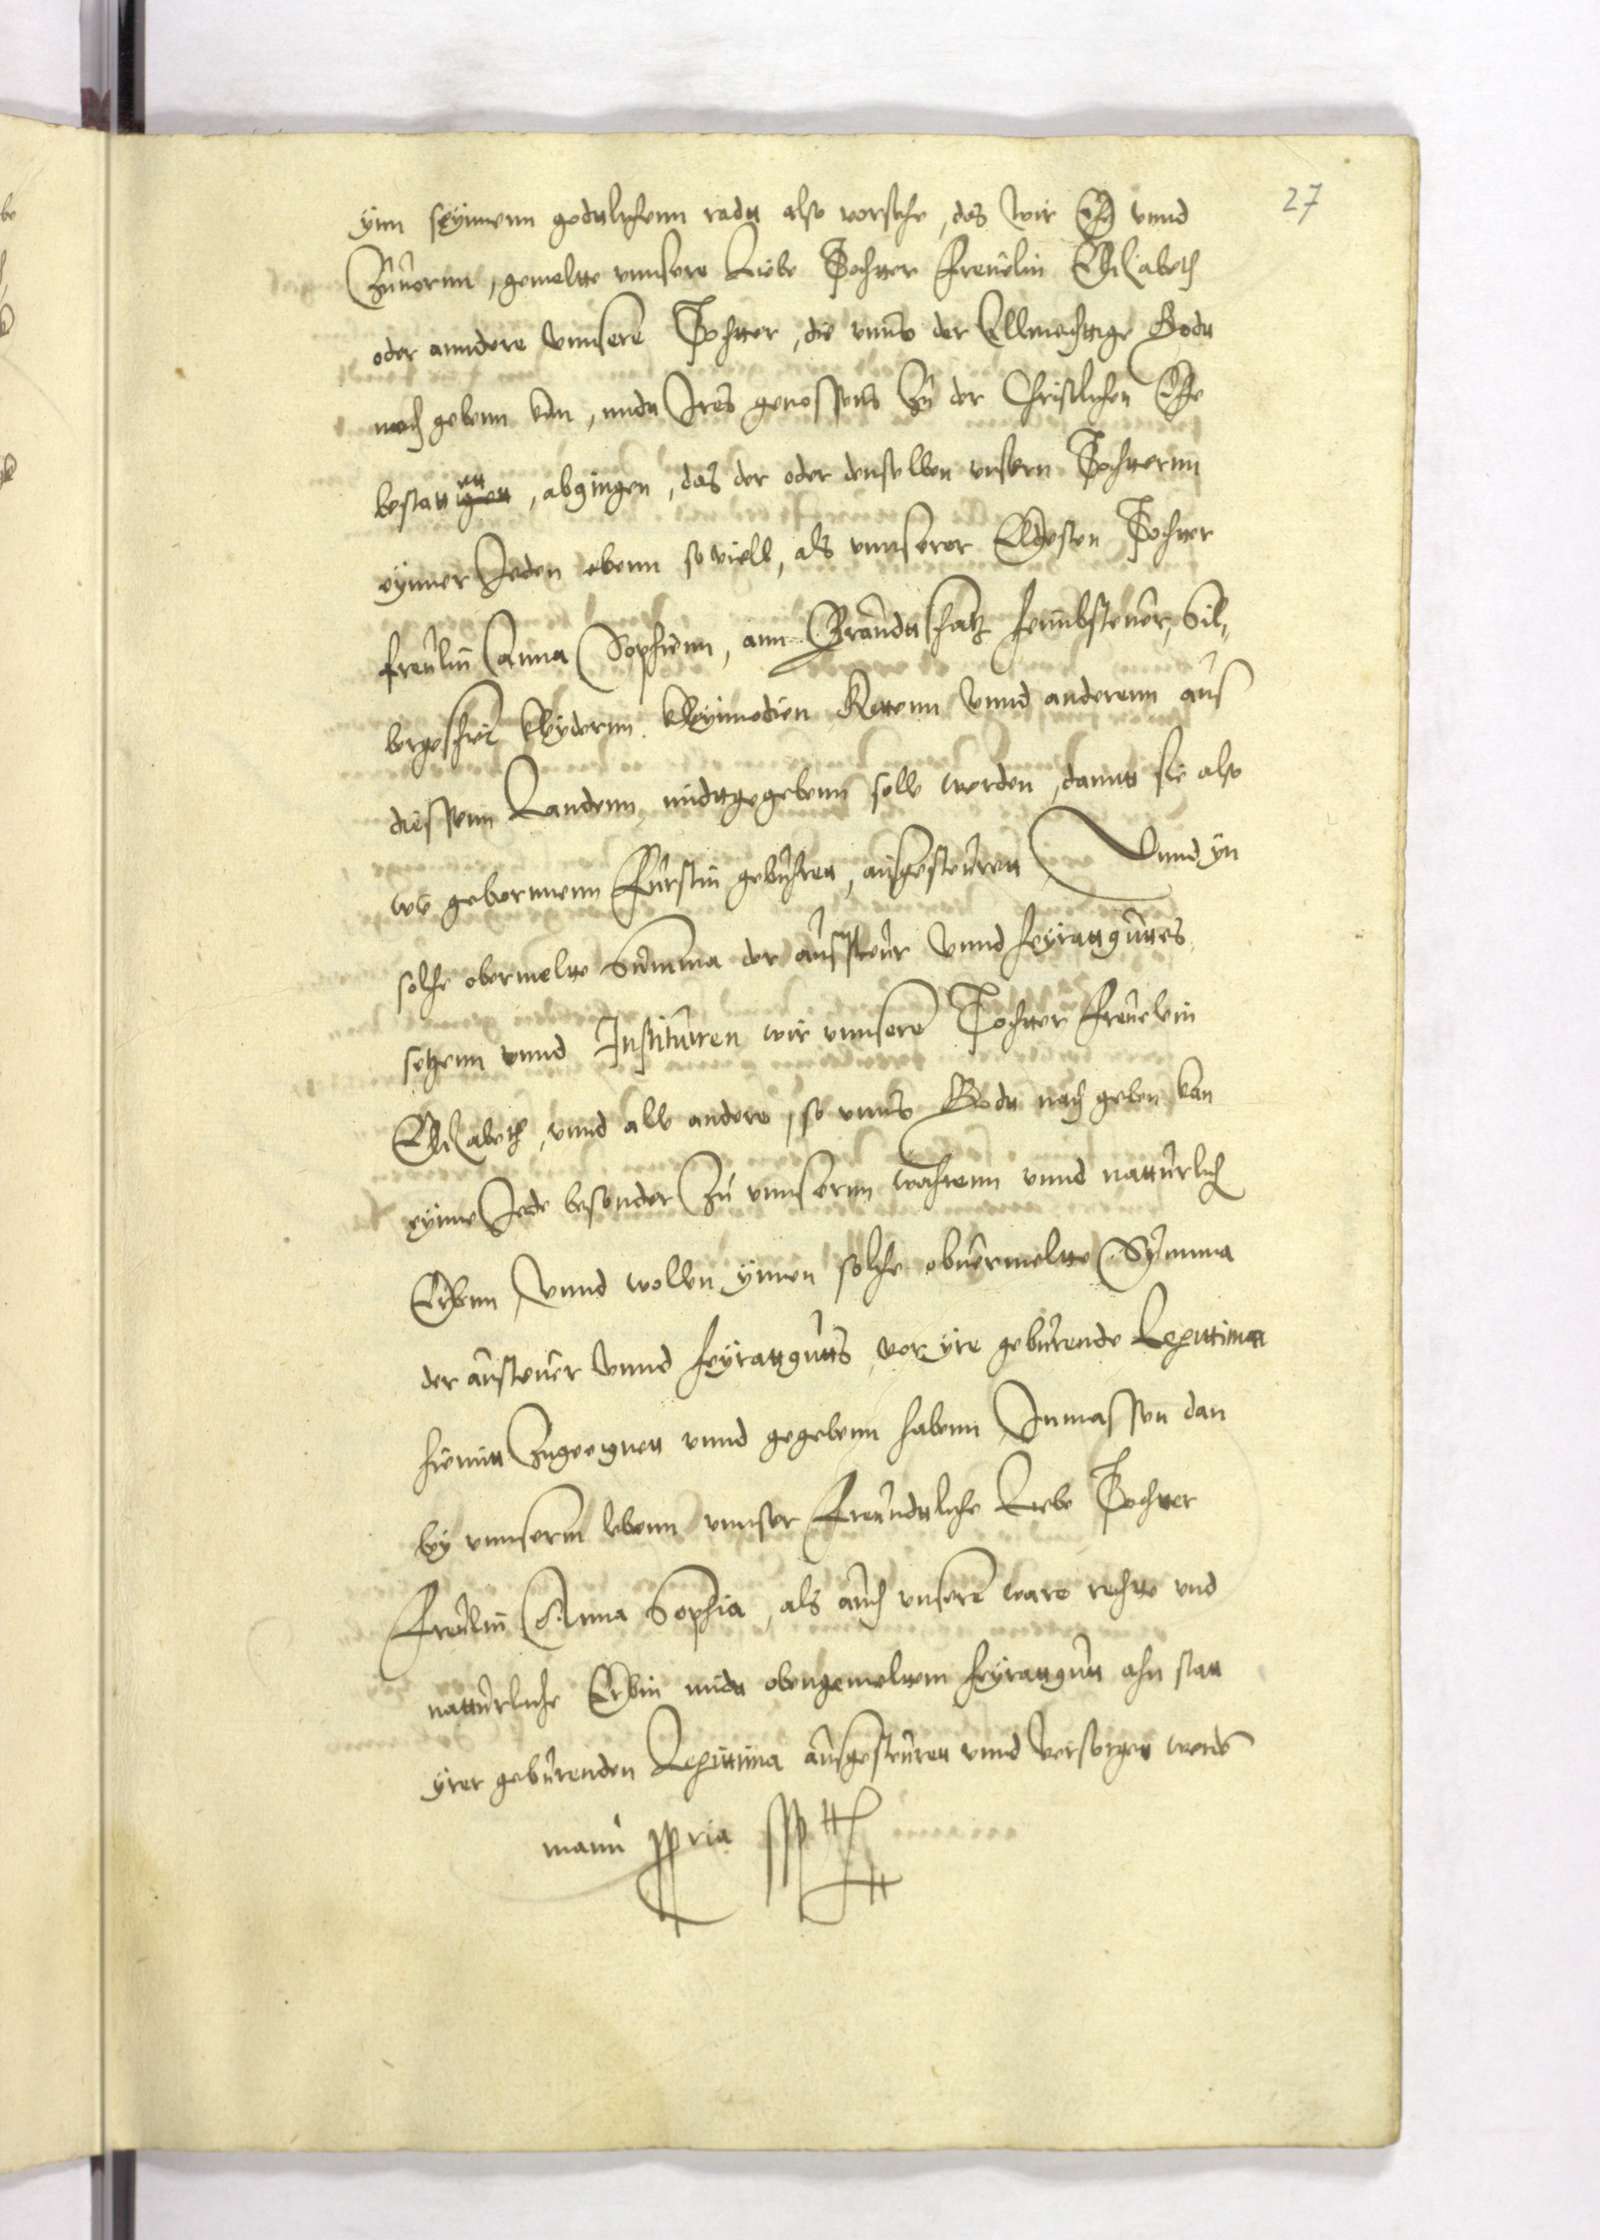 27
ynn seynnenn godtlichenn radtt also vorsehe, das wir Ehe vnnd
Zuuornn, gemeltte vnnsere Liebe Tochtter Freuelin Elisabeth
oder anndere vnnsere Tochtter, die vnns der Allmechttige Godtt
noch gebenn kan, midtt Ires genossens Zu der Christlichen Ehe
bestattett, abgingen, das der oder denselben vnsern Tochternn
eynner Jeden ebenn so viell, als vnnserer Eldesten Tochtter
freulin Anna Sophienn, ann Brudttschatz heimbsteuer, Sil„
bergeschir kleydernn kleynnodien Kettenn vnnd anderenn aus
diessenn Landenn, midttgegebenn soll werden, damitt sie also
wie gebornnenn Furstin geburett, ausgesteurett Vnnd yn
solche obermeltte Summa der aussteur vnnd heyrattguttes
setzenn vnnd Instituiren wir vnnsere Tochtter Freuelin
Elisabeth, vnnd all andere, so vnns Godtt noch geben kan
eynne Jede besonder Zu vnnsernn wahrenn vnnd natturlich
Erbenn, Vnnd wollen ynnen solche obuermeltte Summa
der austeuer vnnd heyrattgutts, vor yre geburende Legittima
hiemitt Zugeeignett vnnd gegebenn habenn, Inmassen dan
by vnnserm lebenn vnnser Freundttliche Liebe Tochtter
Freulin Anna Sophia, als auch vnsere ware rechtte vnd
natturliche Erbin midtt obengemeltem heyrattgutt ahn statt
yrer geburenden Legittima ausgesteurett vnnd versorgett worden
manu ppria sspt